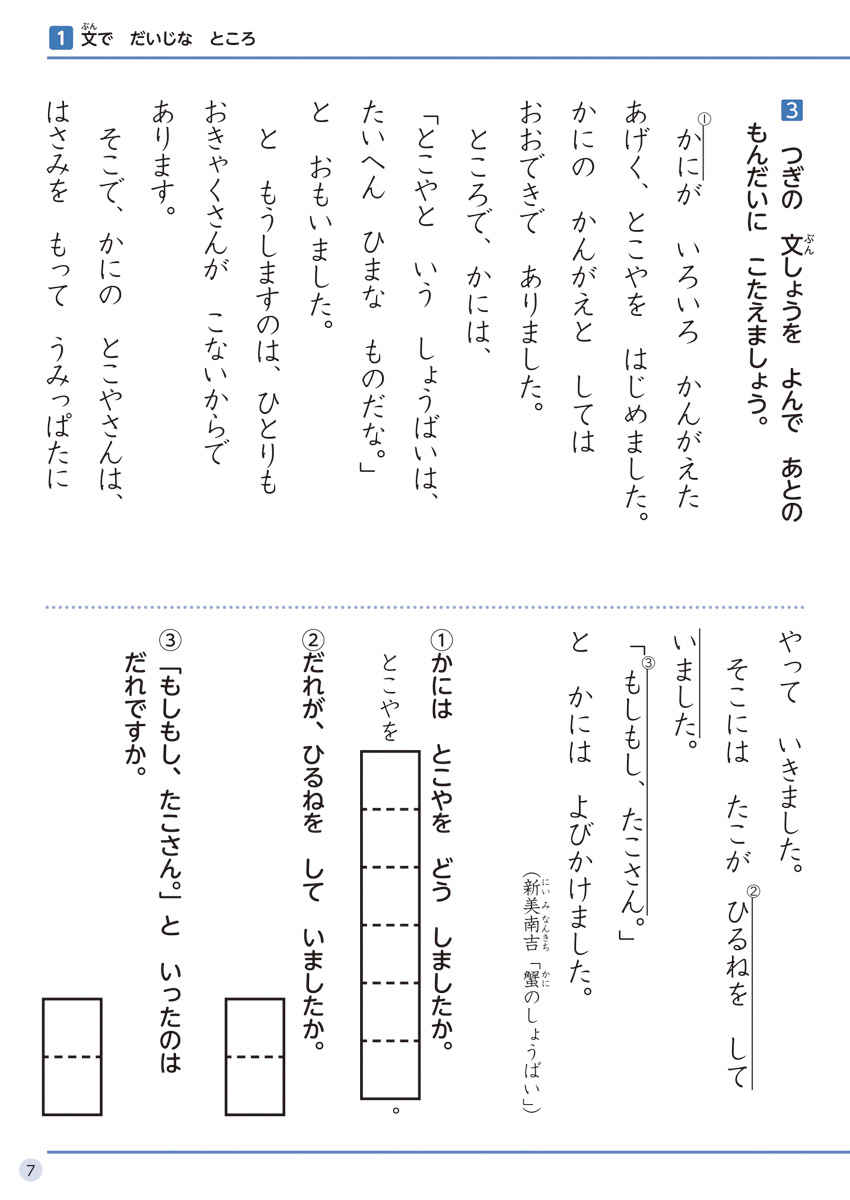 1 文で　だいじな　ところ
ぶん
3 つぎの　文しょうを　よんで　あとの
ぶん
もんだいに　こたえましょう。
①
かにが　いろいろ　かんがえた
あげく、とこやを　はじめました。
かにの　かんがえと　しては
おおできで　ありました。
ところで、かには、
「とこやと　いう　しょうばいは、
たいへん　ひまな　ものだな。」
と　おもいました。
と　もうしますのは、ひとりも
おきゃくさんが　こないからで
あります。
そこで、かにの　とこやさんは、
はさみを　もって　うみっぱたに
やって　いきました。
そこには　たこが　ひるねを　して
②
いました。
「もしもし、たこさん。」
③
と　かには　よびかけました。
（新美南吉「蟹のしょうばい」）
にいみなんきち　かに
①かには　とこやを　どう　しましたか。
とこやを
。
②だれが、ひるねを　して　いましたか。
③「もしもし、たこさん。」と　いったのは
だれですか。
7